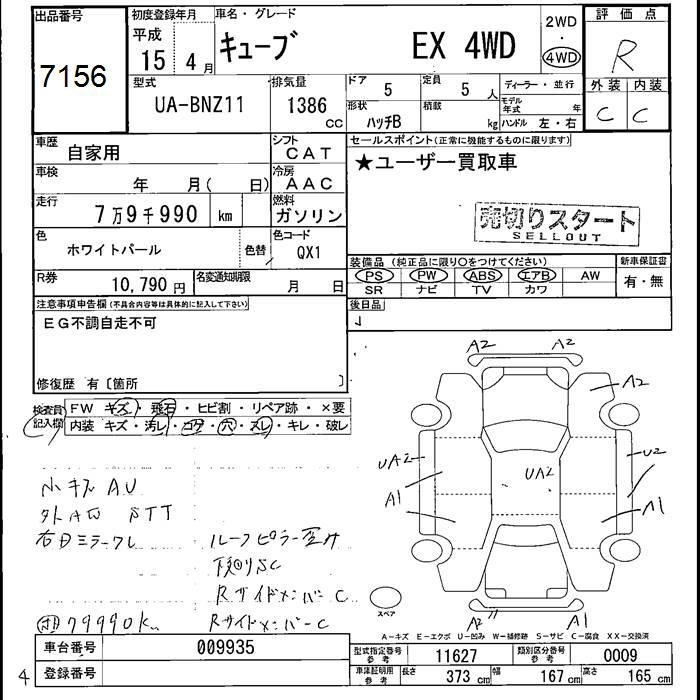 出品番号
7156
初度登録年月
平成
15 4月
車名・グレード
キューブ EX 4WD
2WD
・
4WD
評価点
R
型式
UA-BNZ11
排気量
1386 CC
ドア
5
定員
5 人
ディーラー・並行
形状
ハッチB
積載
kg
モデル年式 年
ハンドル 左・右
外装 内装
C C
車歴
自家用
シフト
CAT
車検
年 月( 日)
冷房
AAC
走行
7万9千990 km
燃料
ガソリン
色
ホワイトパール
色替
色コード
QX1
R券
10,790 円
名変通知期限
月 日
セールスポイント(正常に機能するものに限ります)
★ユーザー買取車
売切りスタート
SELLOUT
装備品 (純正品に限り○をつけてください)
PS PW ABS エアB AW
SR ナビ TV カワ
新車保証書
有・無
注意事項申告欄(不具合内容等は具体的に記入して下さい)
EG不調自走不可
修復歴 有〔箇所 〕
後日品
検査員記入欄
FW キズ・飛石・ヒビ割・リペア跡・×要
内装 キズ・汚レ・コゲ・穴・スレ・キレ・破レ
A2 A2
A2
UA2 UA2 U2
A1 A1
A2 A1
小キズ AU
右ミラークレ
ルーフピラー歪み
下廻りSC
RサイドメンバーC
RサイドメンバーC
79990k
スペア
A-キズ E-エクボ U-凹み W-補修跡 S-サビ C-腐食 XX-交換済
車台番号
009935
登録番号
4
型式指定番号
参考
11627
類別区分番号
参考
0009
車庫証明用
参考
長さ 373 cm 幅 167 cm 高さ 165 cm